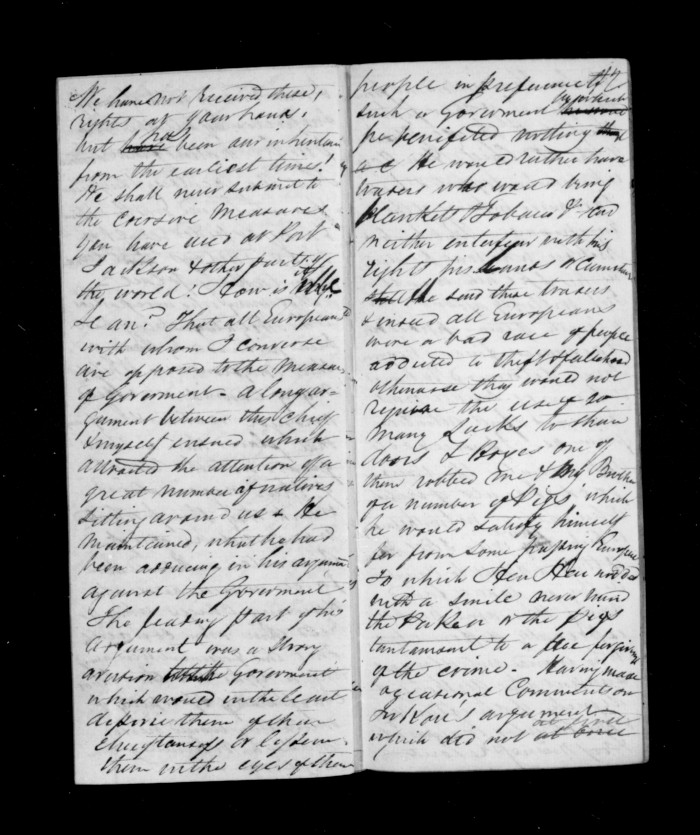 We have not received these,
rights at your hands,
nor have has been our intention
from the earliest time!
We shall never submit to
the coersive measures
you have used at Port
Jackson & other parts of
the world! How is it
he an? That all Europeans
with whom I converse
are opposed to the measures
of Goverment - a long ar=
gument between this Chief
& myself ensued which
attracted the attention of a
great number of natives
sitting around us & He
maintained, what he had
been adducing in his argument
against the Goverment
The leading part of his
argument was a strong
aversion to the Goverment
which would in the least
deprive them of their
chieftanships or lessen
them in the eyes of their
people in preference to 42
such a Goverment by which
he benifited nothing
He would rather have
traders who would bring
Blankets & Tobacco & and
neither interfere with his
rights his lands or Customs
still he said these traders
& indeed all Europeans
were a bad race of people
addicted to theft & falsehood
otherwise they would not
require the use of so
many Locks to their
doors & Boxes one of
them robbed me & my Brother
of a number of Pigs, which
he would satisfy himself
for from some Europe
to which Heu Heu nodded
with a smile never mind
the Pakea or the Pigs
tantamount to a free forgiveness
of the crime - Having made
occational Comments on
argument
which did not at once at once